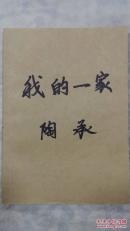 我的一家
陶承